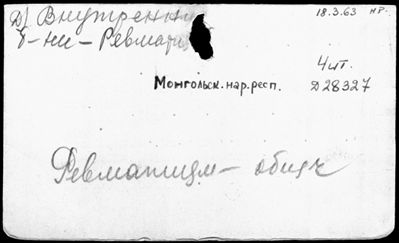 Д) Внутренни
б-ни - Ревмати
18.3.63 НР.
4 шт.
Монгольск. нар. респ. Д28327
Ревматизм - общ